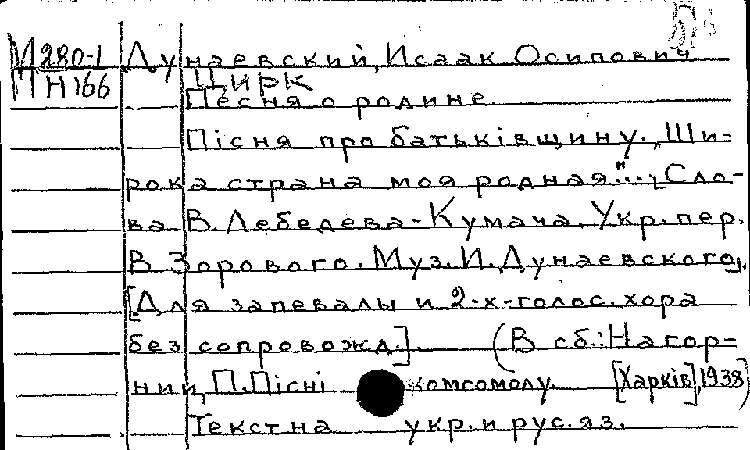 М280-1 Дунаевский, Исаак Осипович
П Н166 Цирк
Песня о родине.
Пісня про батьківщину. "Ши-
рока страна моя родная..." Сло-
ва В. Лебедева-Кумача. Укр. пер.
В. Зорового. Муз. И. Дунаевского.
[Для запевалы и 2-х-голос. хора
без сопровожд.] (В сб.: Нагор-
ний, П. Пісні комсомолу. [Харків], 1938)
Текст на укр. и рус. яз.